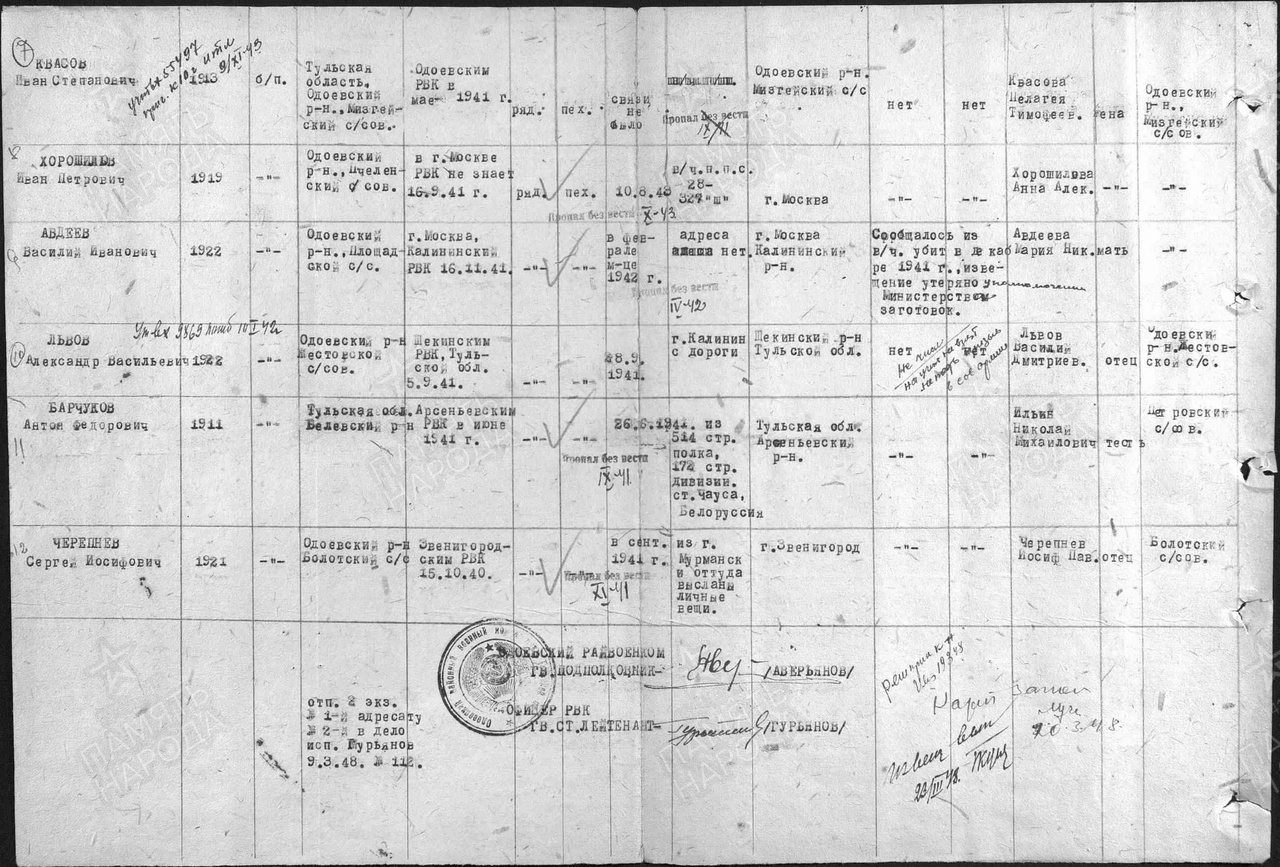 7
КВАСОВ
Иван Степанович
1913
9/XI-43
б/п.
Тульская
область.
Одоевский
р-н.,Мизгей-
ский с/сов.
Одоевским
РВК в
мае 1941 г.
ряд.
пех.
связи
не
было
Пропал без вести
IX/41
Одоевский р-н.
Мизгейский с/с
нет
нет
Квасова
Пелагея
Тимофеев. жена
Одоевский
р-н.,
Мизгейский
с/сов.
8
ХОРОШИЛОВ
Иван Петрович
1919
-"-
Одоевский
р-н.,Пчелен-
ский с/сов.
в г.Москве
РВК не знает
16.9.41 г.
ряд.
пех.
10.8.43
Пропал без вести X-43
в/ч.п.п.с.
28-
327"ш"
г.Москва
-"-
-"-
Хорошилова
Анна Алек.
-"-
-"-
9
АВДЕЕВ
Василий Иванович
1922
-"-
Одоевский
р-н.,Площад-
ской с/с.
г.Москва,
Калининский
РВК 16.11.41.
-"-
-"-
в фев-
рале
м-це
1942 г.
Пропал без вести
IV-42
адреса
нет.
г.Москва
Калининский
р-н.
Сообщалось из
в/ч. убит в декаб
ре 1941 г.,изве-
щение утеряно уполномочен
Министерством
заготовок.
Авдеева
Мария Ник.мать
-"-
10
ЛЬВОВ
Александр Васильевич
1922
-"-
Одоевский р-н
Жестовской
с/сов.
Щекинским
РВК,Туль-
ской обл.
5.9.41.
-"-
-"-
28.9.
1941.
г.Калинин
с дороги
Щекинский р-н
Тульской обл.
нет
Львов
Василий
Дмитриев. отец
Одоевский
р-н.Жестов-
ской с/с.
11
БАРЧУКОВ
Антон Федорович
1911
-"-
Тульская обл.
Белевский р-н
Арсеньевским
РВК в июне
1941 г.
-"-
-"-
26.6.1941.
Пропал без вести
IX-41
из
514 стр.
полка,
172 стр.
дивизии.
ст.Чауса,
Белоруссия
Тульская обл.
Арсеньевский
р-н.
-"-
-"-
Ильин
Николай
Михайлович тесть
Петровский
с/сов.
12
ЧЕРЕПНЕВ
Сергей Иосифович
1921
-"-
Одоевский р-н
Болотский с/с
Звенигород-
ским РВК
15.10.40.
-"-
-"-
в сент.
1941 г.
Пропал без вести
XI-41
из г.
Мурманск
и оттуда
высланы
личные
вещи.
г.Звенигород
-"-
-"-
Черепнев
Иосиф Пав.отец
Болотский
с/сов.
ОДОЕВСКИЙ РАЙВОЕНКОМ
ГВ.ПОДПОЛКОВНИК-
/АВЕРЬЯНОВ/
ОФИЦЕР РВК
ГВ.СТ.ЛЕЙТЕНАНТ-
/ГУРЬЯНОВ/
отп. 2 экз.
№ 1-й адресату
№ 2-й в дело
исп. Гурьянов
9.3.48. № 112.
20.3.48.
23/III 48.
ПАМЯТЬ
НАРОДА